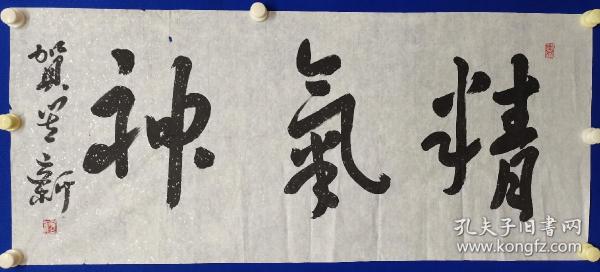 精氣神
賀荣新
孔夫子旧书网
www.kongfz.com